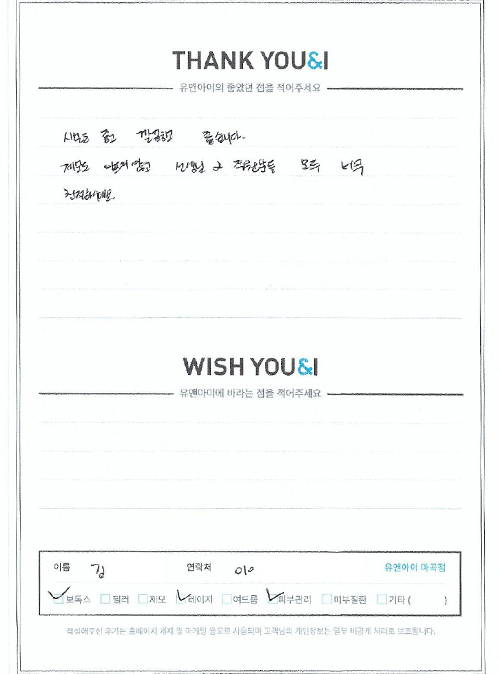 THANK YOU&I
유앤아이의 좋았던 점을 적어주세요
시설도 좋고 깔끔하고 좋습니다.
선생님 과 직원분들 모두 너무
친절하세요.
WISH YOU&I
유앤아이에 바라는 점을 적어주세요
이름 김 연락처 010 유앤아이 마곡점
보톡스 필러 제모 레이저 여드름 피부관리 피부질환 기타 ( )
작성해주신 후기는 홈페이지 게재 및 마케팅 용도로 사용되며 고객님의 개인정보는 일부 비공개 처리로 보호됩니다.